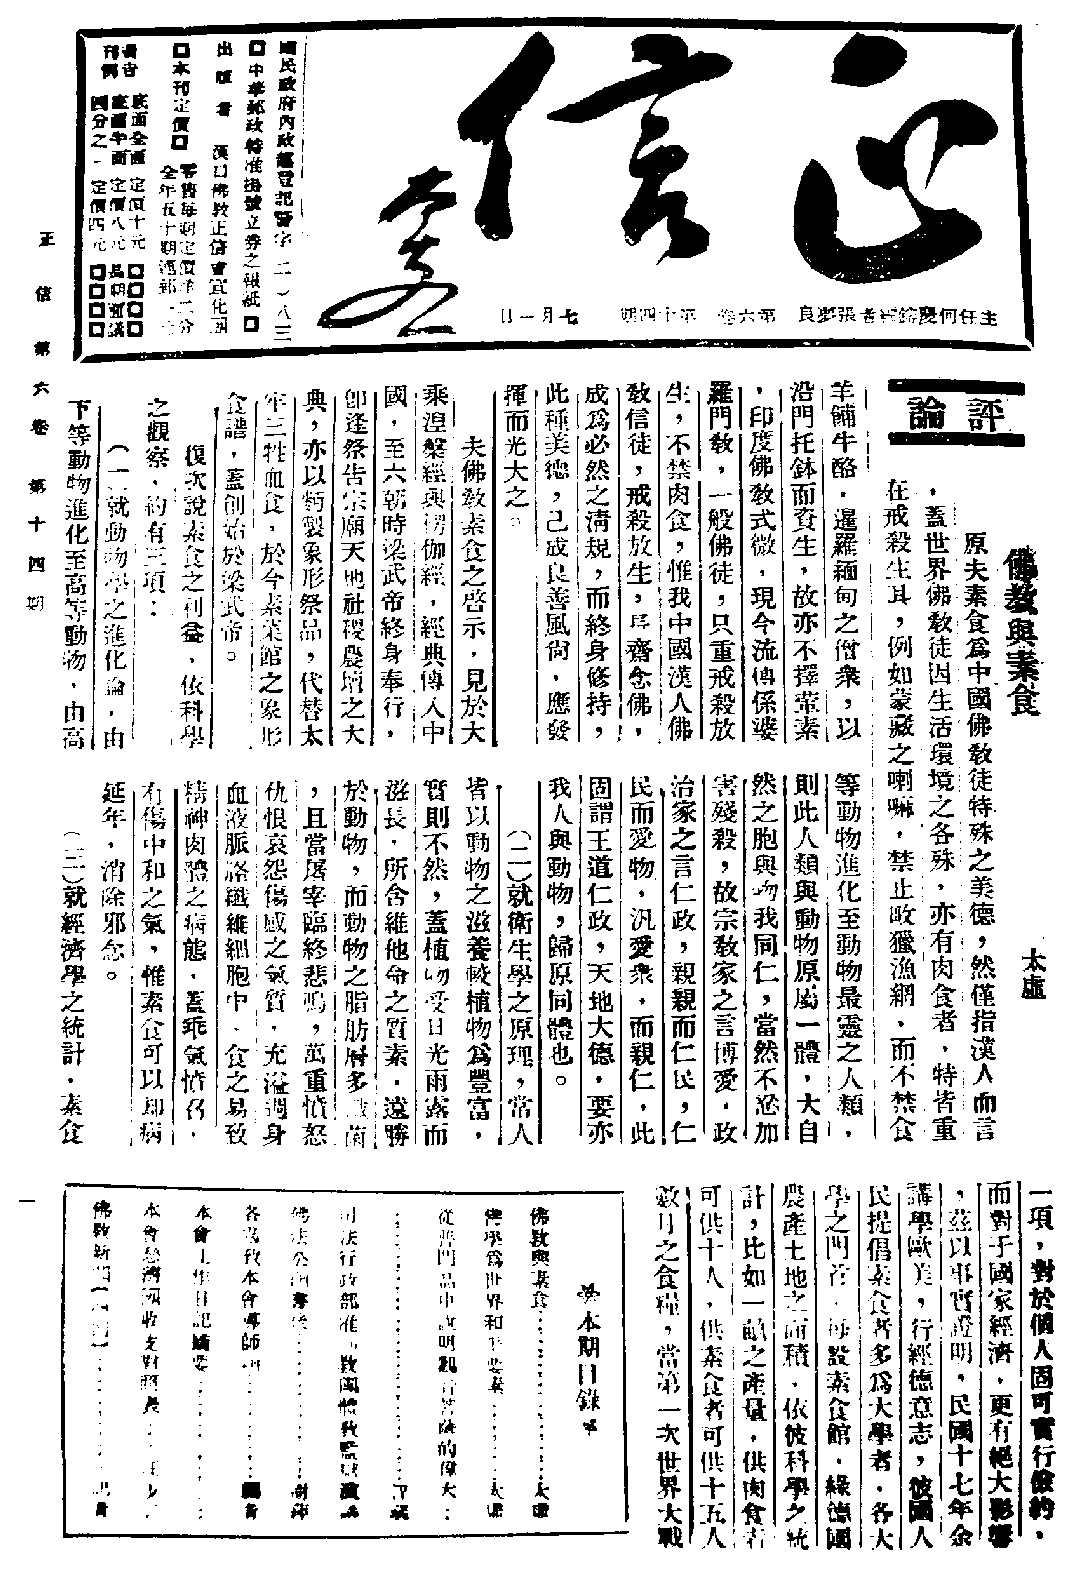 正信
主任何慶餘 編者張夢良 第六卷 第十四期 七月一日
國民政府內政部登記警字二一八三
中華郵政特准掛號立券之報紙
出版者 漢口佛教正信會宣化團
本刊定價
零售每期定價洋二分
全年五十期
廣告刊例
底面全面 定價十元
底面半面 定價八元 長期面議
四分之一 定價四元
正信 第六卷 第十四期
評論
佛教與素食
太虛
原夫素食為中國佛教徒特殊之美德，然僅指漢人而言
，蓋世界佛教徒因生活環境之各殊，亦有肉食者，特皆重
在戒殺生耳，例如蒙藏之喇嘛，禁止畋獵漁網，而不禁食
羊餔牛酪，暹羅緬甸之僧衆，以
沿門托鉢而資生，故亦不擇葷素
，印度佛教式微，現今流傳係婆
羅門教，一般佛徒，只重戒殺放
生，不禁肉食，惟我中國漢人佛
教信徒，戒殺放生，長齋念佛，
成為必然之清規，而終身修持，
此種美德，已成良善風尚，應發
揮而光大之。
夫佛教素食之啓示，見於大
乘涅槃經與楞伽經，經典傳入中
國，至六朝時梁武帝終身奉行，
卽逢祭告宗廟天地社稷農壇之大
典，亦以麪製象形祭品，代替太
牢三牲血食，於今素菜館之象形
食譜，蓋創始於梁武帝。
復次說素食之利益，依科學
之觀察，約有三項：
（一）就動物學之進化論，由
下等動物進化至高等動物，由高
等動物進化至動物最靈之人類，
則此人類與動物原屬一體，大自
然之胞與物我同仁，當然不忍加
害殘殺，故宗教家之言博愛，政
治家之言仁政，親親而仁民，仁
民而愛物，汎愛衆，而親仁，此
固謂王道仁政，天地大德，要亦
我人與動物，歸原同體也。
（二）就衛生學之原理，常人
皆以動物之滋養較植物為豐富，
實則不然，蓋植物受日光雨露而
滋長，所含維他命之質素，遠勝
於動物，而動物之脂肪層多菌
，且當屠宰臨終悲鳴，萬重憤怒
仇恨哀怨傷感之氣質，充溢週身
血液脈胳纖維細胞中，食之易致
精神肉體之病態，蓋乖氣憤召，
有傷中和之氣，惟素食可以却病
延年，消除邪念。
（三）就經濟學之統計，素食
一項，對於個人固可實行儉約，
而對于國家經濟，更有絕大影響
，茲以事實證明，民國十七年余
講學歐美，行經德意志，彼國人
民提倡素食者多為大學者，各大
學之門首，每設素食館，緣德國
農產土地之面積，依彼科學之統
計，比如一畝之產量，供肉食者
可供十人，供素食者可供十五人
數月之食糧，當第一次世界大戰
本期目錄
佛教與素食……太虛
佛學為世界和平要素……太虛
從普門品中說明觀音菩薩的偉大
司法行政部准
佛法公
各寫致本會導師
本會上半年日記摘要……
本會慈濟團收支對照表……
佛教新聞
一